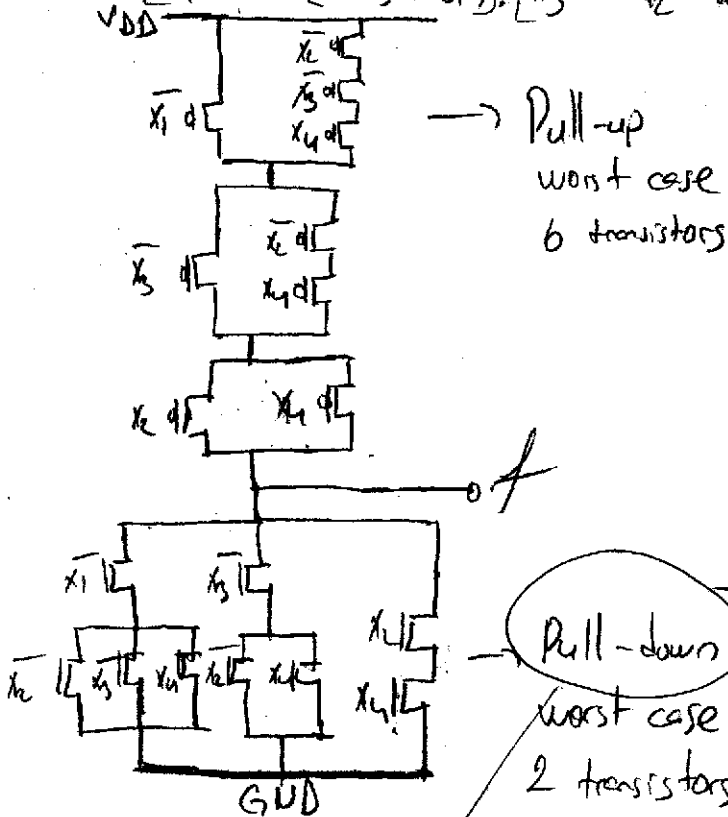 VDD
x̅2
x̅3
x̅1
x4
→ Pull-up
worst case
6 transistors
x̅2
x̅3
x4
x2
x4
f
x̅1
x̅3
x2
x̅2
x̅3
x4
x̅2
x4
x4
→ Pull-down
worst case
2 transistors
GND